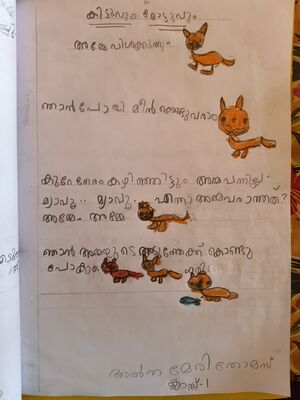 കിട്ടുവും മോട്ടുവും
അമ്മേ വിശക്കുന്നു
ഞാൻ പോയി മീൻ കൊണ്ടുവരാം
കുറേ നേരം കഴിഞ്ഞിട്ടും അമ്മ വന്നില്ല
മ്യാവൂ.. മ്യാവൂ. എന്താ അമ്മ വരാത്തത്?
അമ്മേ അമ്മേ
ഞാൻ അമ്മയുടെ അടുത്തേക്ക് കൊണ്ടു
പോകു
അൽന മേരി തോമസ്
ക്ലാസ്-1